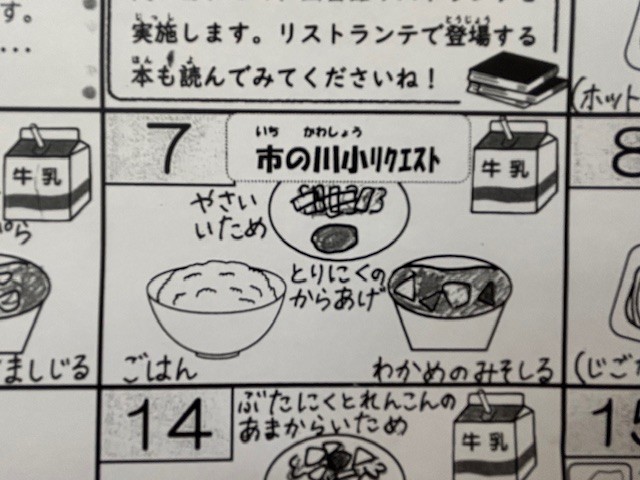 す。
…
じっし
実施します。リストランテで登場する
とうじょう
ほん よ
本も読んでみてくださいね！
(ホット
牛乳
7
いち かわしょう
市の川小リクエスト
牛乳
8
やさい
いため
とりにくの
からあげ
ましじる
ごはん
わかめのみそしる
(じご
14
ぶたにくとれんこんの
あまからいため
牛乳
15